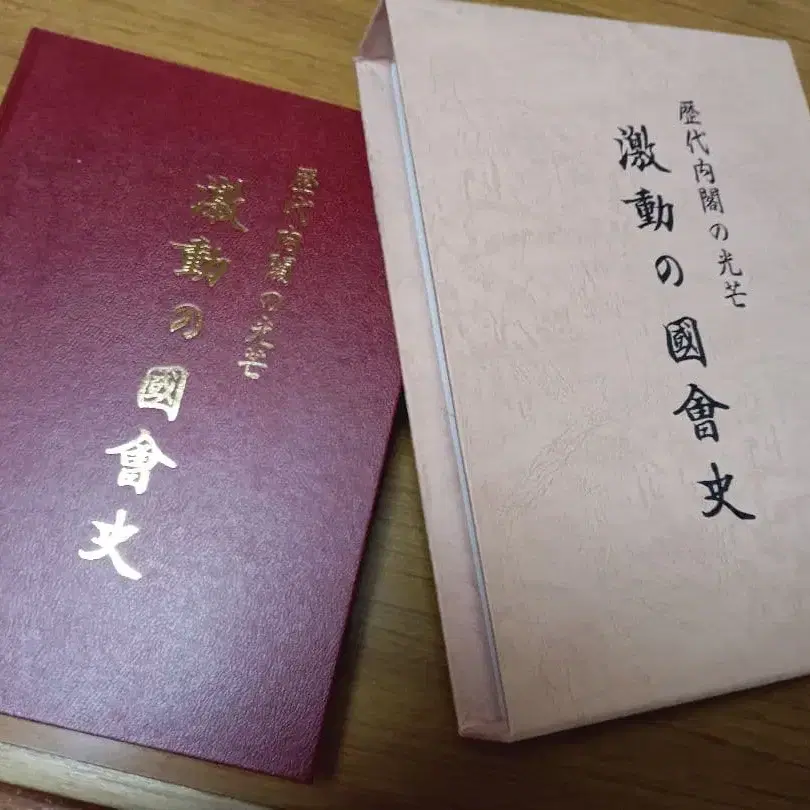 歴代内閣の光芒
激動の國會史
歴代内閣の光芒
激動の國會史